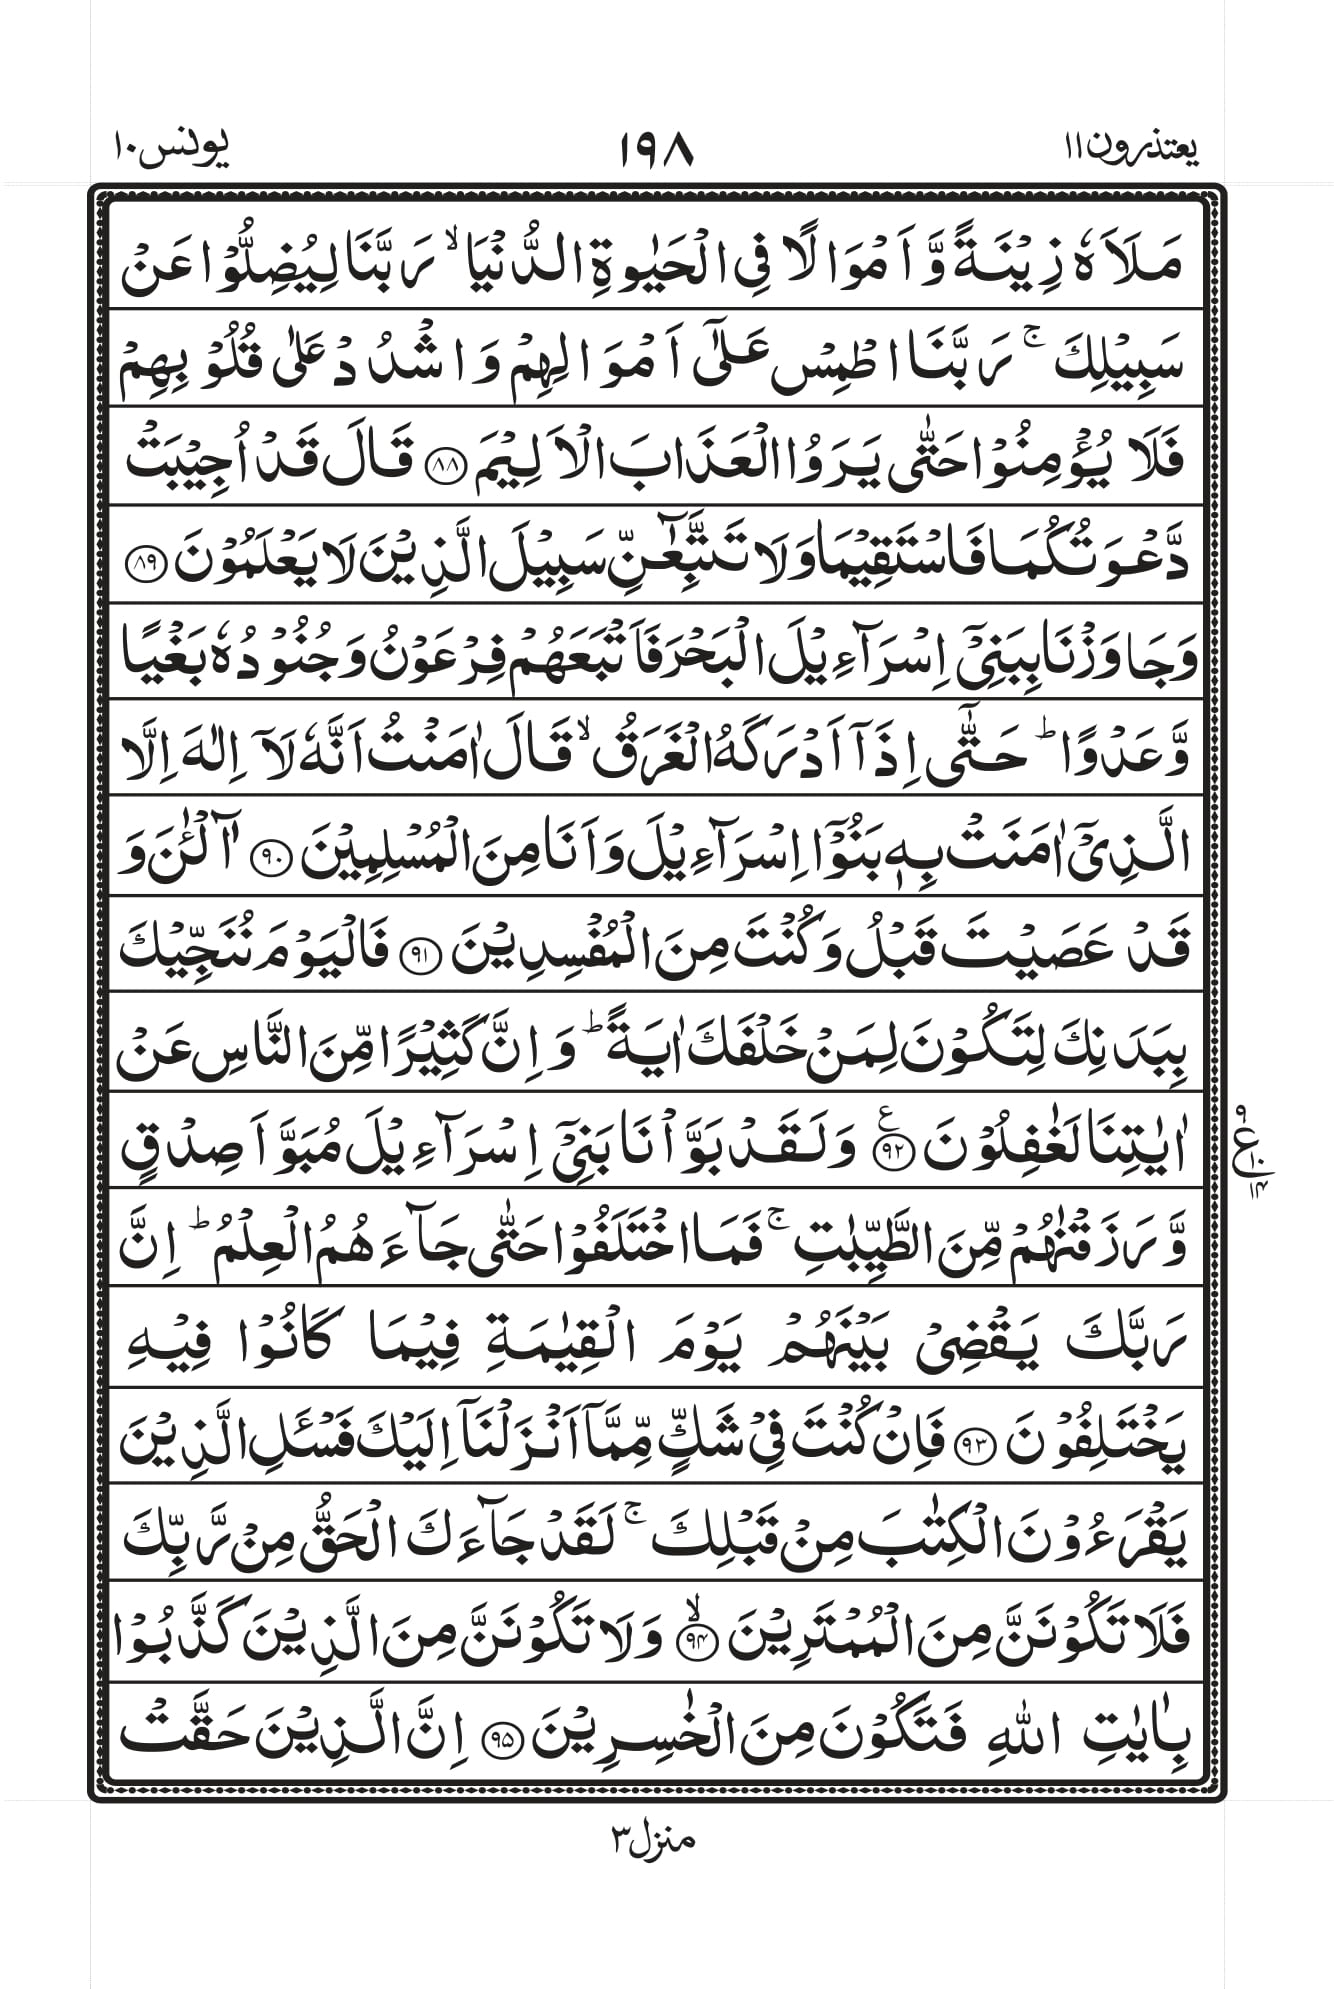 يعتذرون ١١
١٩٨
يونس ١٠
مَلَاَهٗ زِيْنَةً وَّاَمْوَالًا فِى الْحَيٰوةِ الدُّنْيَا ۙ رَبَّنَا لِيُضِلُّوْا عَنْ
سَبِيْلِكَ ۚ رَبَّنَا اطْمِسْ عَلٰٓى اَمْوَالِهِمْ وَاشْدُدْ عَلٰى قُلُوْبِهِمْ
فَلَا يُؤْمِنُوْا حَتّٰى يَرَوُا الْعَذَابَ الْاَلِيْمَ ﴿۸۸﴾ قَالَ قَدْ اُجِيْبَتْ
دَّعْوَتُكُمَا فَاسْتَقِيْمَا وَلَا تَتَّبِعٰٓنِّ سَبِيْلَ الَّذِيْنَ لَا يَعْلَمُوْنَ ﴿۸۹﴾
وَجَاوَزْنَا بِبَنِىْٓ اِسْرَآءِيْلَ الْبَحْرَ فَاَتْبَعَهُمْ فِرْعَوْنُ وَجُنُوْدُهٗ بَغْيًا
وَّعَدْوًا ؕ حَتّٰٓى اِذَآ اَدْرَكَهُ الْغَرَقُ ۙ قَالَ اٰمَنْتُ اَنَّهٗ لَآ اِلٰهَ اِلَّا
الَّذِىْٓ اٰمَنَتْ بِهٖ بَنُوْٓا اِسْرَآءِيْلَ وَاَنَا مِنَ الْمُسْلِمِيْنَ ﴿۹۰﴾ آٰلْـٰٔنَ وَ
قَدْ عَصَيْتَ قَبْلُ وَكُنْتَ مِنَ الْمُفْسِدِيْنَ ﴿۹۱﴾ فَالْيَوْمَ نُنَجِّيْكَ
بِبَدَنِكَ لِتَكُوْنَ لِمَنْ خَلْفَكَ اٰيَةً ؕ وَاِنَّ كَثِيْرًا مِّنَ النَّاسِ عَنْ
اٰيٰتِنَا لَغٰفِلُوْنَ ﴿۹۲﴾ ع وَلَقَدْ بَوَّاْنَا بَنِىْٓ اِسْرَآءِيْلَ مُبَوَّاَ صِدْقٍ
۹ ع ۱۰ ۱۴
وَّرَزَقْنٰهُمْ مِّنَ الطَّيِّبٰتِ ۚ فَمَا اخْتَلَفُوْا حَتّٰى جَآءَهُمُ الْعِلْمُ ؕ اِنَّ
رَبَّكَ يَقْضِىْ بَيْنَهُمْ يَوْمَ الْقِيٰمَةِ فِيْمَا كَانُوْا فِيْهِ
يَخْتَلِفُوْنَ ﴿۹۳﴾ فَاِنْ كُنْتَ فِىْ شَكٍّ مِّمَّآ اَنْزَلْنَآ اِلَيْكَ فَسْـَٔلِ الَّذِيْنَ
يَقْرَءُوْنَ الْكِتٰبَ مِنْ قَبْلِكَ ۚ لَقَدْ جَآءَكَ الْحَقُّ مِنْ رَّبِّكَ
فَلَا تَكُوْنَنَّ مِنَ الْمُمْتَرِيْنَ ﴿۹۴﴾ ۙ وَلَا تَكُوْنَنَّ مِنَ الَّذِيْنَ كَذَّبُوْا
بِاٰيٰتِ اللّٰهِ فَتَكُوْنَ مِنَ الْخٰسِرِيْنَ ﴿۹۵﴾ اِنَّ الَّذِيْنَ حَقَّتْ
منزل ٣